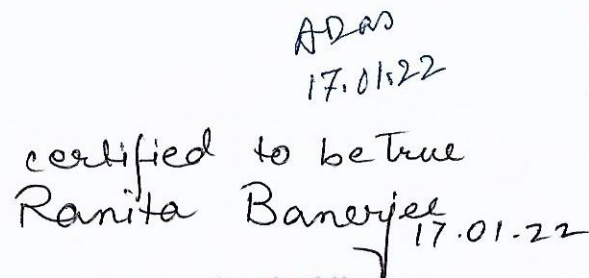 ADas
17.01.22
certified to be True
Ranita Banerjee 17.01.22